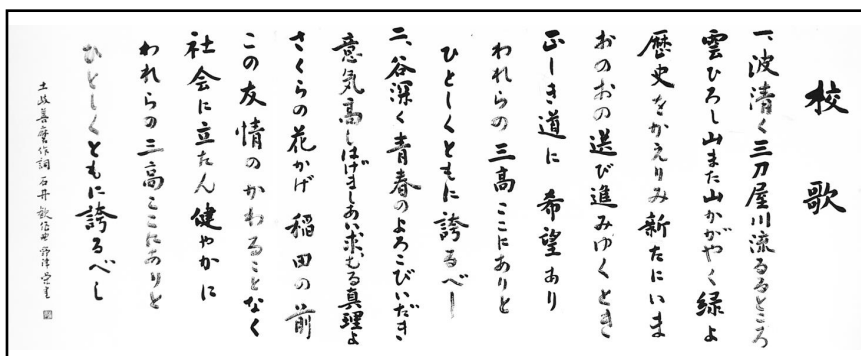 校歌
一、波清く三刀屋川流るるところ
雲ひろし山また山かがやく緑よ
歴史をかえりみ新たにいま
おのおの選び進みゆくとき
正しき道に 希望あり
われらの三高ここにありと
ひとしくともに誇るべし
二、谷深く青春のよろこびいだき
意気高しはげましあい求むる真理よ
さくらの花かげ 稲田の前
この友情のかわることなく
社会に立たん健やかに
われらの三高ここにありと
ひとしくともに誇るべし
土岐善麿作詞 石井歓作曲